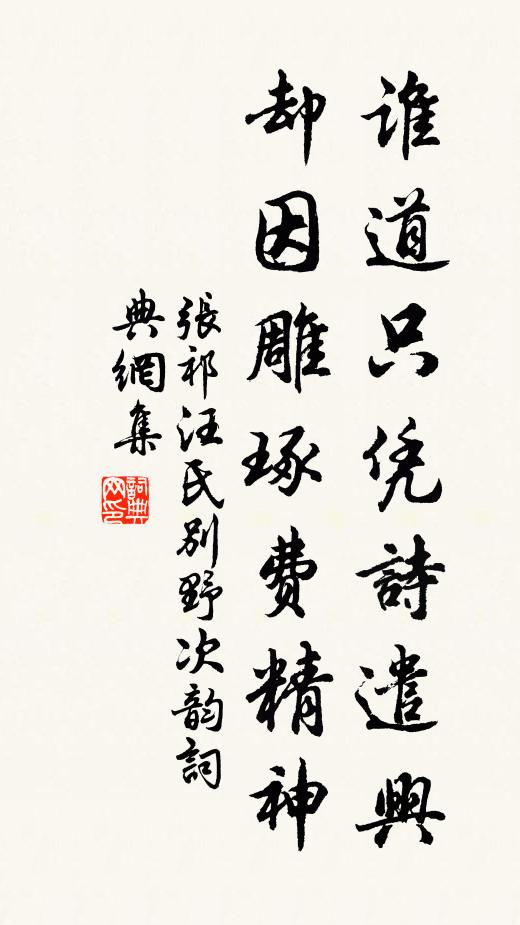 誰道只凭詩遣興
却因雕琢費精神
張祁汪氏別野次韵詞
典網集
詞典網印